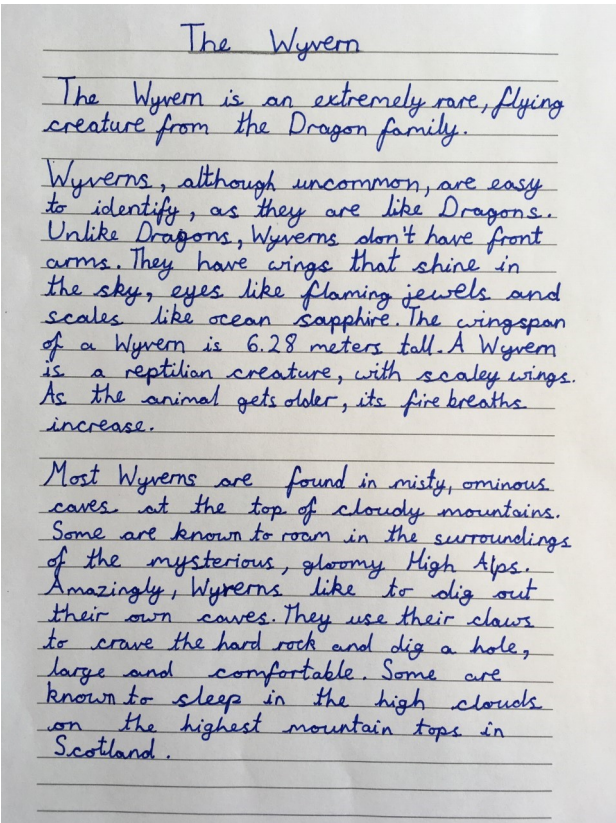 The Wyvern
The Wyvern is an extremely rare, flying
creature from the Dragon family.
Wyverns, although uncommon, are easy
to identify, as they are like Dragons.
Unlike Dragons, Wyverns don't have front
arms. They have wings that shine in
the sky, eyes like flaming jewels and
scales like ocean sapphire. The wingspan
of a Wyvern is 6.28 meters tall. A Wyvern
is a reptilian creature, with scaley wings.
As the animal gets older, its fire breaths
increase.
Most Wyverns are found in misty, ominous
caves at the top of cloudy mountains.
Some are known to roam in the surroundings
of the mysterious, gloomy High Alps.
Amazingly, Wyverns like to dig out
their own caves. They use their claws
to crave the hard rock and dig a hole,
large and comfortable. Some are
known to sleep in the high clouds
on the highest mountain tops in
Scotland.